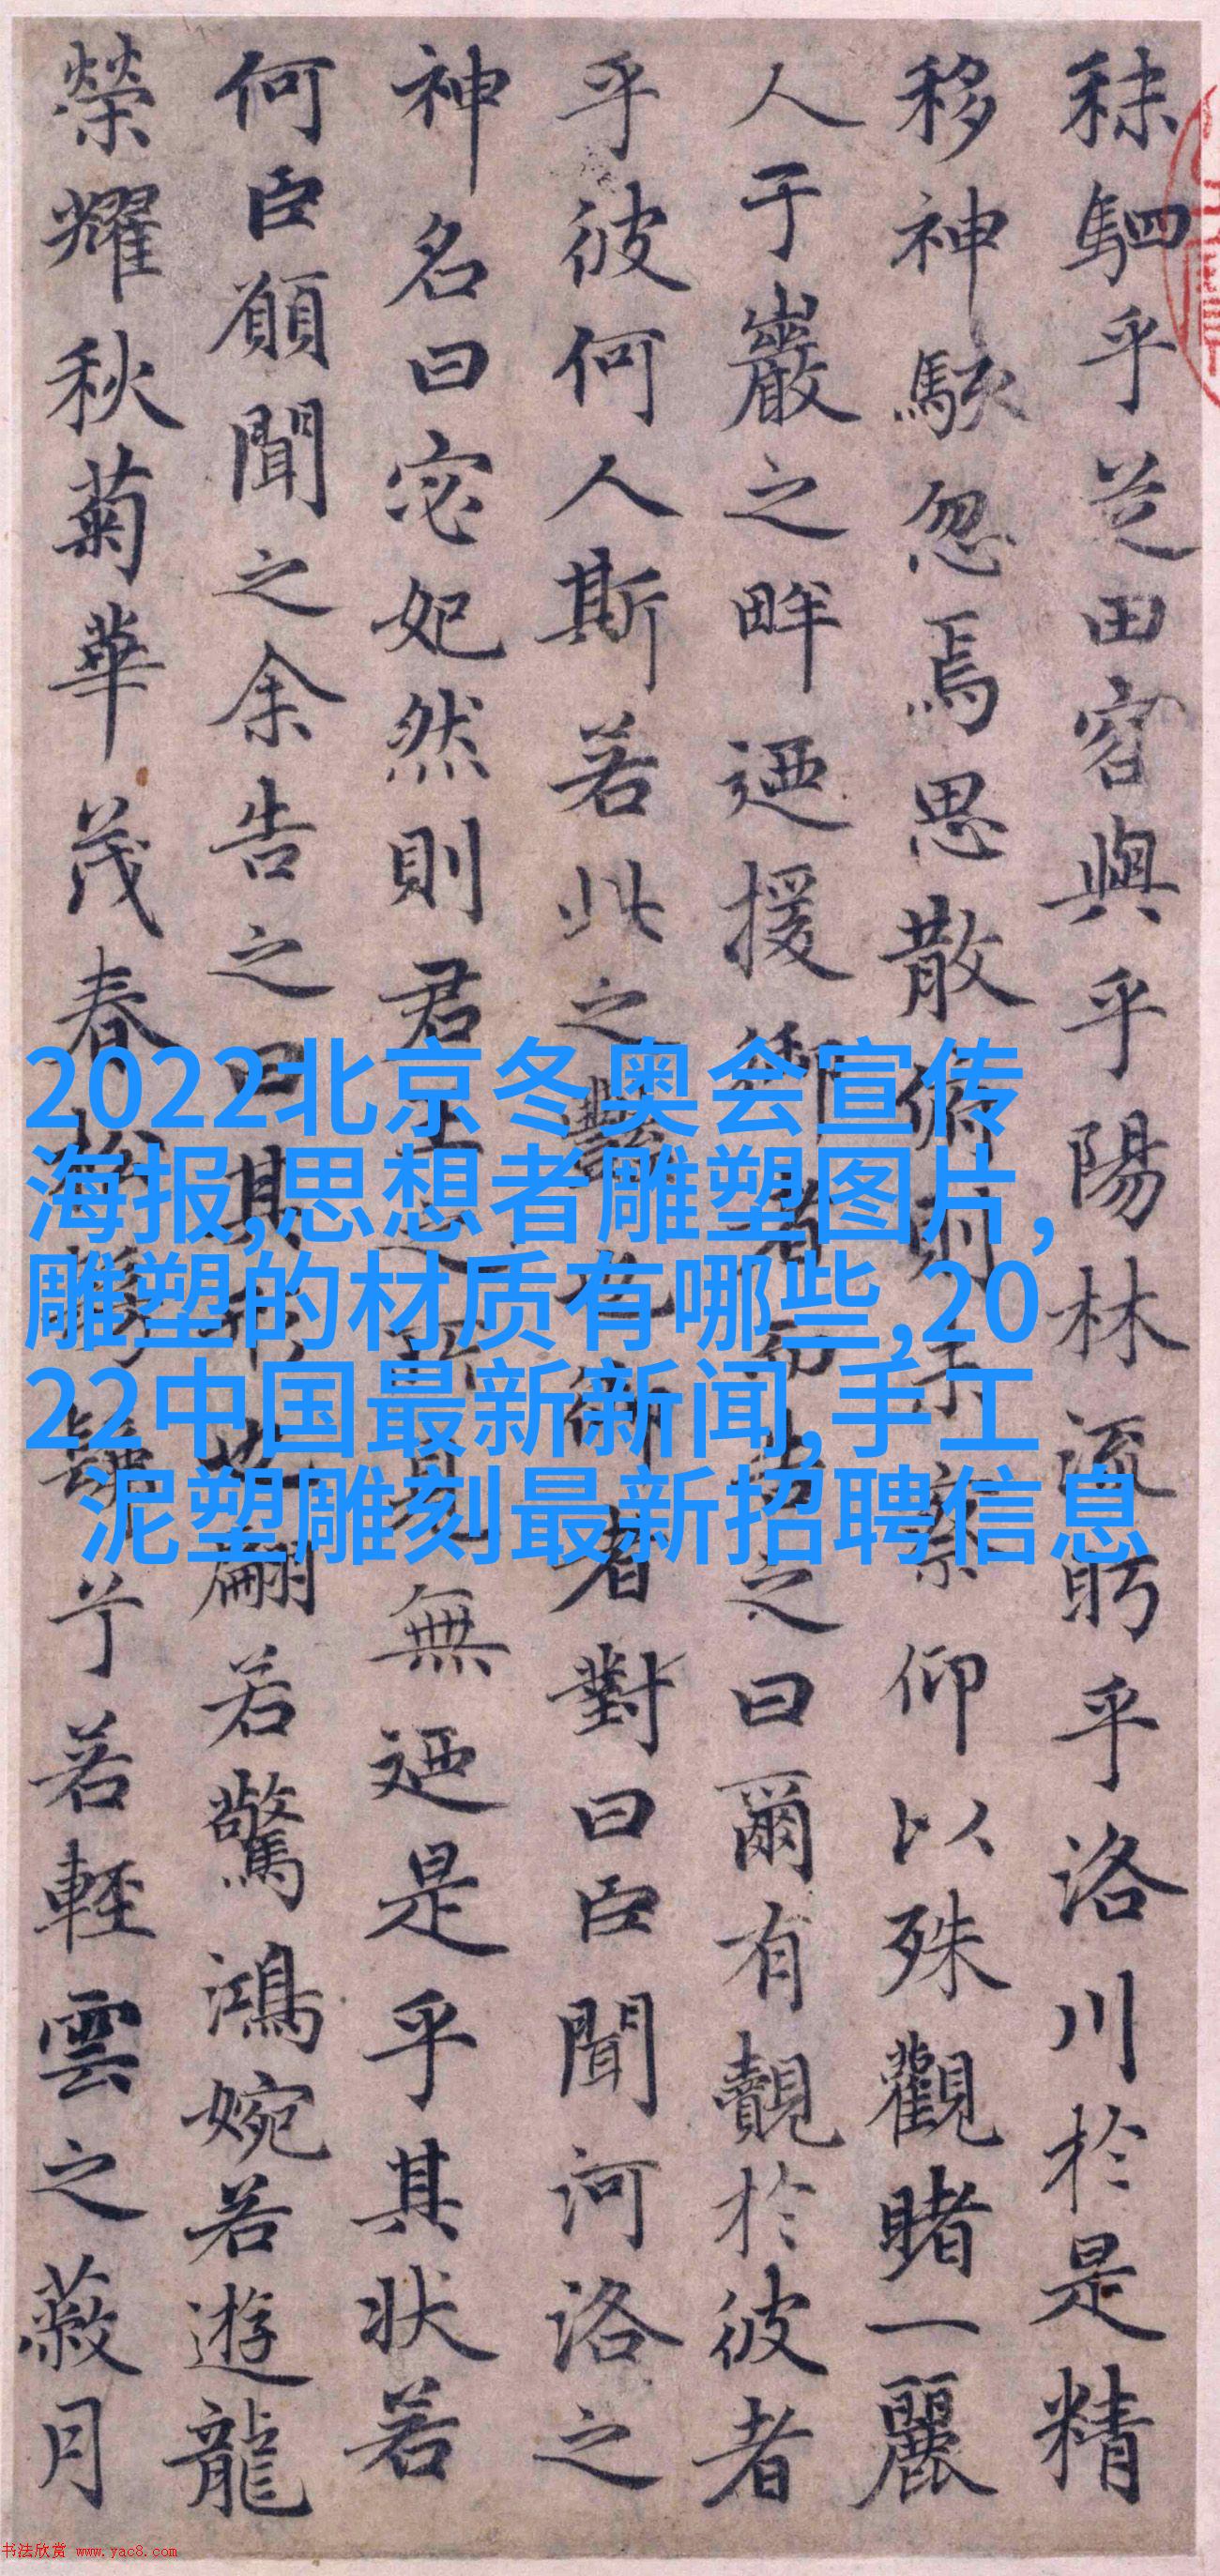 秣駟乎芝田容與乎陽林流眄乎洛川於是精
移神駭忽焉思散俯則未察仰以殊觀睹一麗
人于巖之畔迺援御者而告之曰爾有覿於彼者
乎彼何人斯若此之豔也御者對曰臣聞河洛之
神名曰宓妃然則君王之所見無迺是乎其狀若
何臣願聞之余告之曰其形也翩若驚鴻婉若遊龍
榮耀秋菊華茂春松髣髴兮若輕雲之蔽月
2022北京冬奥会宣传
海报,思想者雕塑图片,
雕塑的材质有哪些,20
22中国最新新闻,手工
泥塑雕刻最新招聘信息
书法欣赏 www.yac8.com